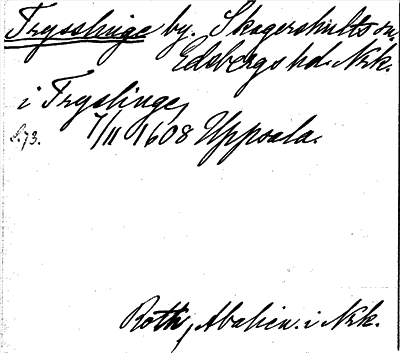 Trysslinge by. Skagershults sn.
Edsbergs hd. Nrk.
i Tryslinge,
s. 73. 7/11 1608 Uppsala.
Roth, Abalien. i Nrk.